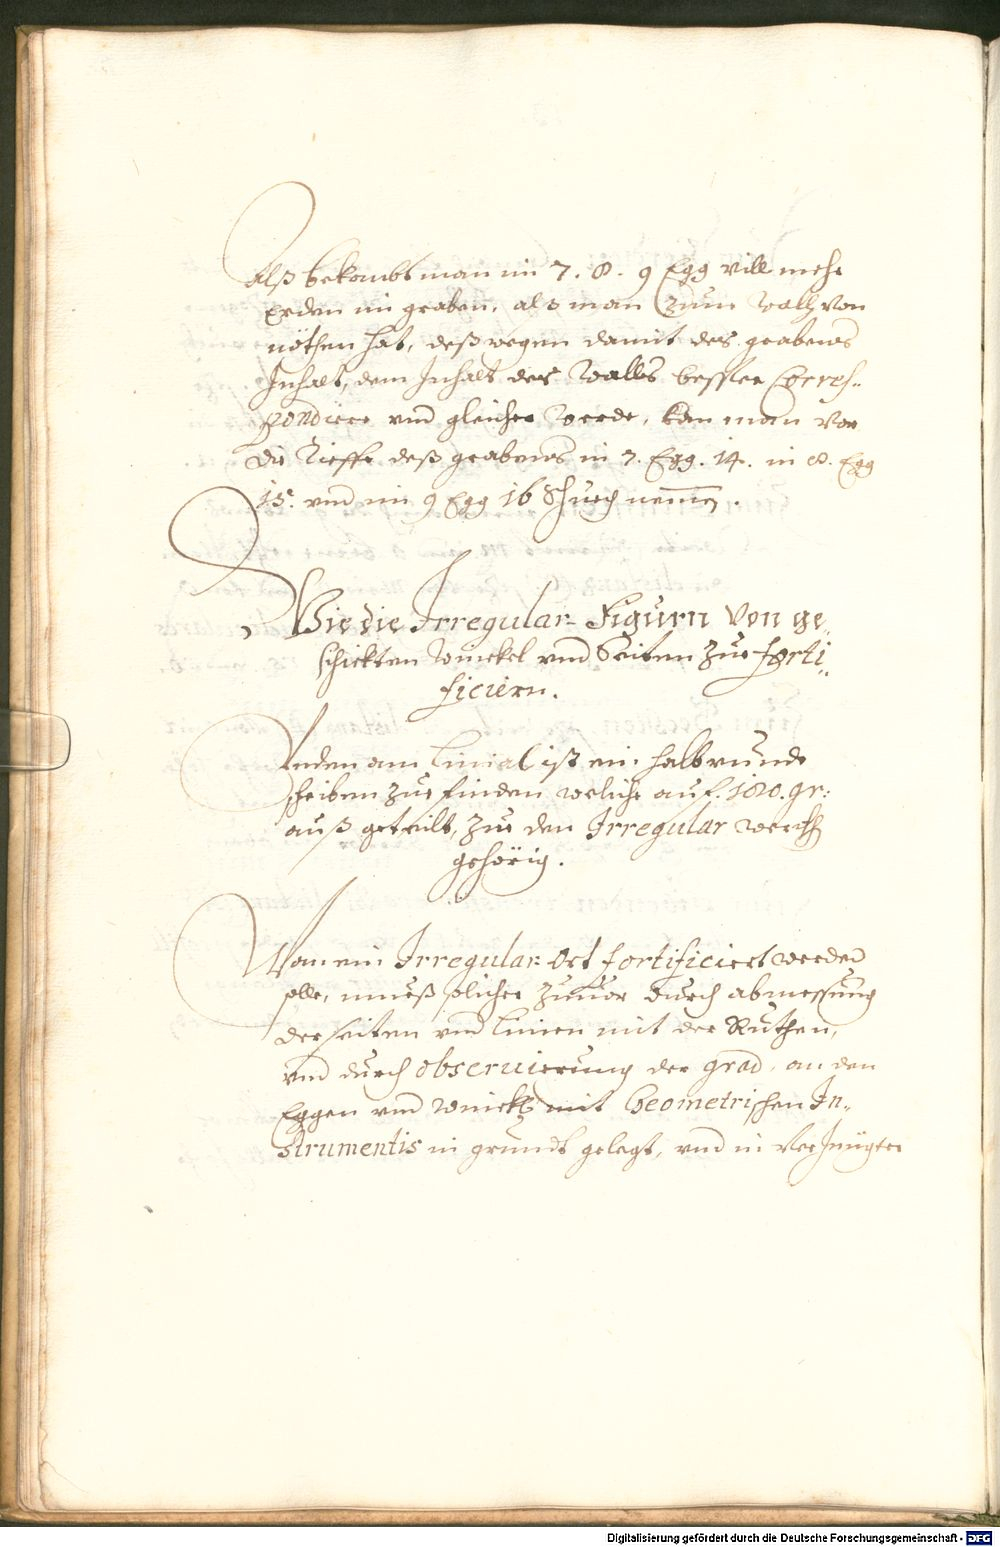 Alß bekombt man im 7. 8. 9 Egg vill mehr
Erden im graben, als man zum Wall von
nöthen hat, deßwegen damit des grabens
Inhalt, dem Inhalt des Walls besser Corres-
pondiere vnd gleicher werde, kan man vor
die Tieffe deß grabens in 7. Egg. 14. in 8. Egg
15. vnd im 9 Egg 16 Schuch nemen.
Wie die Irregular- Figurn Von ge-
schickten Winckel vnd Seiten zue forti-
ficiern.
Vnden am Linial ist ein halb runde
scheiben zue finden, weliche auf. 180. gr:
auß geteilt, zue den Irregular werckh
gehörig.
Wan ein Irregular- Ort fortificiert werden
solle, mueß solicher zuuor durch abmessung
der seiten vnd Linien mit der Ruthen,
vnd durch obseruierung der grad, an den
Eggen vnd Winckhl mit Geometrischen In-
strumentis in grundt gelegt, vnd in Verjüngter
Digitalisierung gefördert durch die Deutsche Forschungsgemeinschaft - DFG